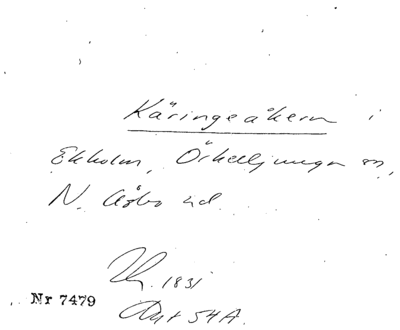 Käringeåkern i
Ekholm, Örkelljunga sn,
N. Åsbo hd.
1831
Nr 7479
Akt 54A.